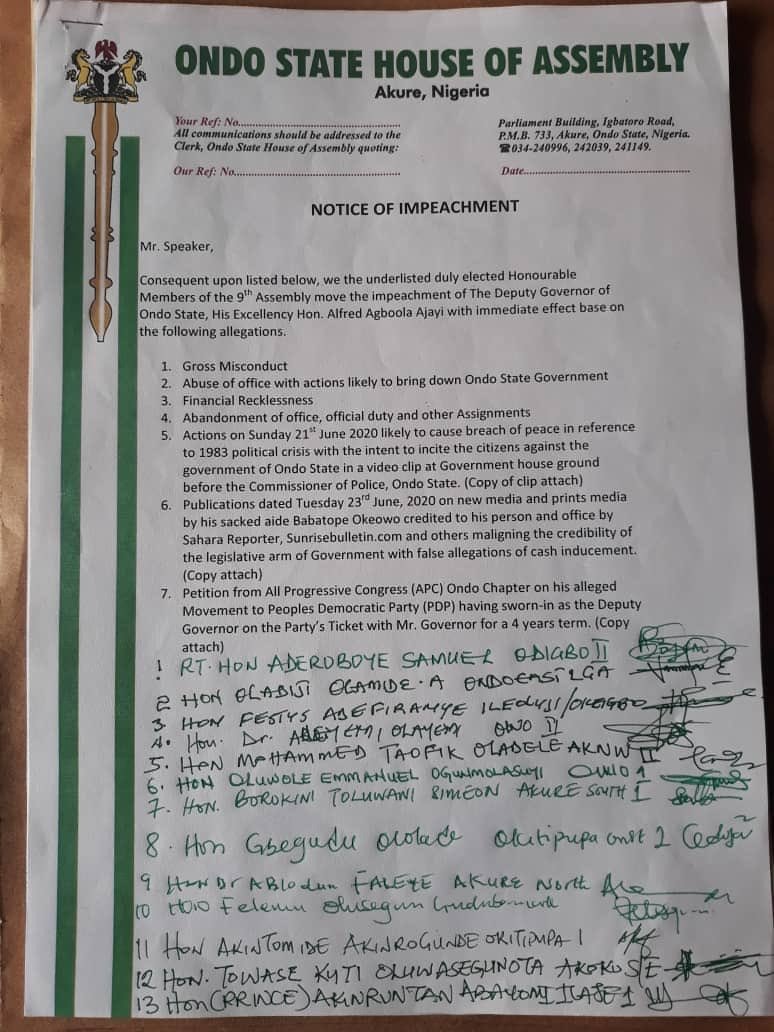 ONDO STATE HOUSE OF ASSEMBLY
Akure, Nigeria
Your Ref: No.
All communications should be addressed to the
Clerk, Ondo State House of Assembly quoting:
Our Ref: No.
Parliament Building, Igbatoro Road,
P.M.B. 733, Akure, Ondo State, Nigeria.
☎034-240996, 242039, 241149.
Date
NOTICE OF IMPEACHMENT
Mr. Speaker,
Consequent upon listed below, we the underlisted duly elected Honourable
Members of the 9th Assembly move the impeachment of The Deputy Governor of
Ondo State, His Excellency Hon. Alfred Agboola Ajayi with immediate effect base on
the following allegations.
1. Gross Misconduct
2. Abuse of office with actions likely to bring down Ondo State Government
3. Financial Recklessness
4. Abandonment of office, official duty and other Assignments
5. Actions on Sunday 21st June 2020 likely to cause breach of peace in reference
to 1983 political crisis with the intent to incite the citizens against the
government of Ondo State in a video clip at Government house ground
before the Commissioner of Police, Ondo State. (Copy of clip attach)
6. Publications dated Tuesday 23rd June, 2020 on new media and prints media
by his sacked aide Babatope Okeowo credited to his person and office by
Sahara Reporter, Sunrisebulletin.com and others maligning the credibility of
the legislative arm of Government with false allegations of cash inducement.
(Copy attach)
7. Petition from All Progressive Congress (APC) Ondo Chapter on his alleged
Movement to Peoples Democratic Party (PDP) having sworn-in as the Deputy
Governor on the Party's Ticket with Mr. Governor for a 4 years term. (Copy
attach)
1 RT. HON ADEROBOYE SAMUEL ODIGBO II
2 HON OLABIJI OLAMIDE. A ONDO EAST LGA
3. HON FESTUS ADEFIRANYE ILEOLUJI/OKEIGBO
4. Hon. Dr. OLAYEMI OWO II
5. HON MOHAMMED TAOFIK OLADELE AKNW II
6. HON OLUWOLE EMMANUEL OGUNMOLASUYI OWO 1
7. HON. BOROKINI TOLUWANI SIMEON AKURE SOUTH I
8. Hon Gbegudu Ololade Okitipupa 2
9 HON Dr ABIODUN FALEYE AKURE North
10 Felemu
11 HON AKINTOMIDE AKINROGUNDE OKITIPUPA I
12 HON. TOWASE KUTI OLUWASEGUNOTA AKOKO S/E
13 Hon (PRINCE) AKINRUNTAN ABAYOMI ILAJE 1